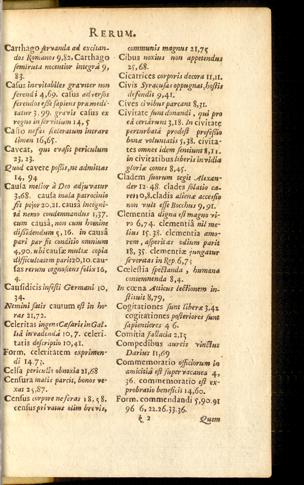 RERUM.
Carthago servanda ad excitan-
dos Romanos 9,82. Carthago
semiruta recentior integrâ 9,
83.
Casus inevitabiles graviter non
ferendi 4,69. casus adversos
ferendos esse sapiens præmedi-
tatur 3,99. gravis casus ex
regno in servitium 14,5
Casto nefas sceleratum intrare
limen 16,65.
Caveat, qui evasit periculum
23, 23.
Quod cavere possis, ne admittas
14, 94
Causa melior à Deo adjuvatur
3,68. causa mala patrocinio
fit pejor 20,21. causâ incogni-
tâ nemo condemnandus 1,37.
cum causâ, non cum homine
dissidendum 5,16. in causâ
pari par sit conditio omnium
4,90. ubi causæ multæ copia
difficultatem parit 20,10. cau-
sas rerum cognoscens felix 16,
1.
Causidicis insisti Germani 10,
34.
Nemini satis cautum est in ho-
ras 21,72.
Celeritas ingens Cæsaris in Gal-
liâ invadendâ 10,7. celeri-
tatis descriptio 10,41.
Form. celeritatem exprimen-
di 14,73.
Celsa periculis obnoxia 21,68
Censura malis parcit, bonos ve-
xat 25,87.
Census corpore neferas 18,58.
census privatus olim brevis,
communis magnus 21,75
Cibus noxius non appetendus
25,68.
Cicatrices corporis decora 11,11.
Civis Syracusas oppugnas, hostis
defendis 9,41.
Cives à civibus parcant 8,31.
Civitate sunt donandi, qui pro
eâ certârunt 3,18. In civitate
perturbatâ prodest professio
bonæ voluntatis 5,38. civita-
tes omnes idem sentiunt 8,11.
in civitatibus liberis invidia
gloriæ comes 8,45.
Cladem suorum tegit Alexan-
der 12.48. clades solatio ca-
rens 10,8. cladis alienæ accessio
non vult esse Bocchus 9,91.
Clementia digna est magno vi-
ro 6,74. clementiâ nil me-
lius 15.38. clementia amo-
rem, asperitas odium parit
18, 35. clementiæ jungatur
severitas in Rep. 6,75
Cœlestia spectanda, humana
contemnenda 8,4.
In cœna Atticus lectionem in-
stituit 8,79,
Cogitationes sunt liberæ 3,42
cogitationes posteriores sunt
sapientiores 4 6.
Comitia fallacia 2,15
Compedibus aureis vinctus
Darius 11,69
Commemoratio officiorum in
amicitiâ est supervacanea 4,
36. commemoratio est ex-
probratio beneficii 14,60.
Form. commendandi 5,90.91
96 6, 22.26.33.36.
¢ 2
Quem